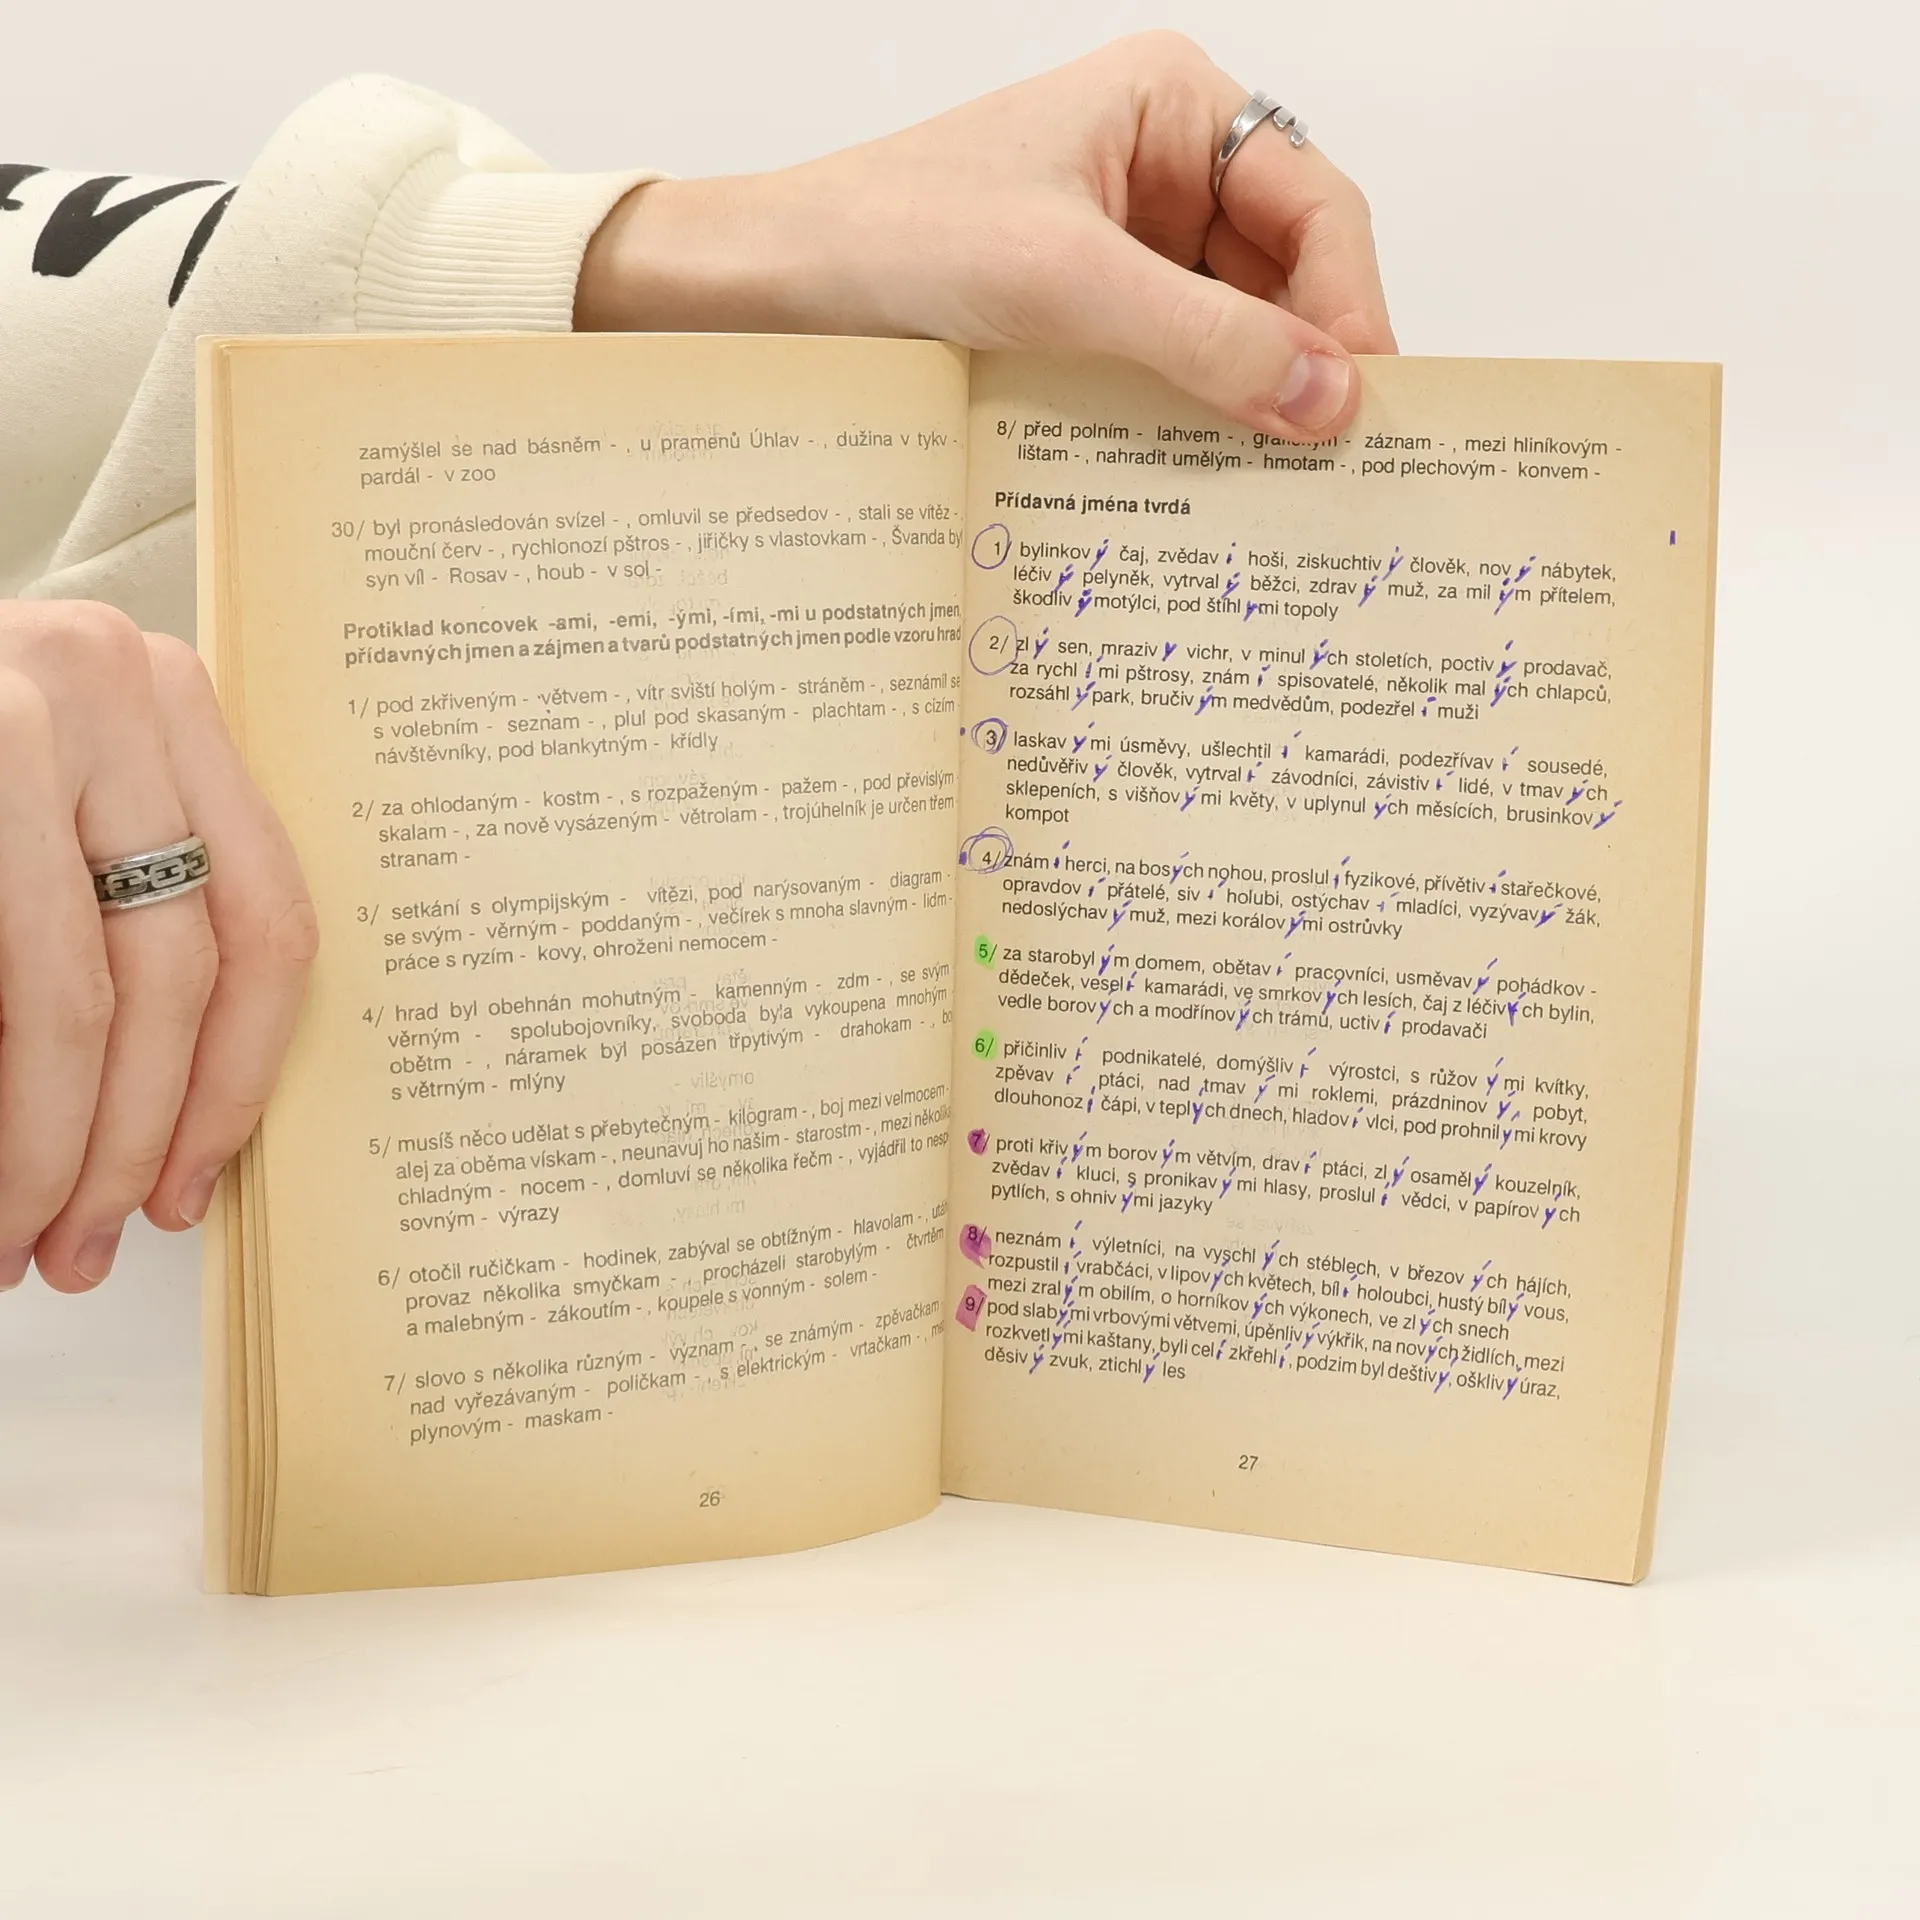 zamýšlel se nad básněm - , u pramenů Úhlav - , dužina v tykv -
pardál - v zoo
30/ byl pronásledován svízel - , omluvil se předsedov - , stali se vítěz -
mouční červ - , rychlonozí pštros - , jiřičky s vlastovkam - , Švanda byl
syn víl - Rosav - , houb - v sol -
Protiklad koncovek -ami, -emi, -ými, -ími, -mi u podstatných jmen,
přídavných jmen a zájmen a tvarů podstatných jmen podle vzoru hrad
1/ pod zkřiveným - větvem - , vítr sviští holým - stráněm - , seznámil se
s volebním - seznam - , plul pod skasaným - plachtam - , s cizím -
návštěvníky, pod blankytným - křídly
2/ za ohlodaným - kostm - , s rozpaženým - pažem - , pod převislým -
skalam - , za nově vysázeným - větrolam - , trojúhelník je určen třem -
stranam -
3/ setkání s olympijským - vítězi, pod narýsovaným - diagram -
se svým - věrným - poddaným - , večírek s mnoha slavným - lidm -
práce s ryzím - kovy, ohroženi nemocem -
4/ hrad byl obehnán mohutným - kamenným - zdm - , se svým
věrným - spolubojovníky, svoboda byla vykoupena mnohým -
obětm - , náramek byl posázen třpytivým - drahokam - , bo
s větrným - mlýny
5/ musíš něco udělat s přebytečným - kilogram - , boj mezi velmocem -
alej za oběma vískam - , neunavuj ho našim - starostm - , mezi několika
chladným - nocem - , domluví se několika řečm - , vyjádřil to nesp
sovným - výrazy
6/ otočil ručičkam - hodinek, zabýval se obtížným - hlavolam - , utáh
provaz několika smyčkam - , procházeli starobylým - čtvrtěm
a malebným - zákoutím - , koupele s vonným - solem -
7/ slovo s několika různým - význam - , se známým - zpěvačkam
nad vyřezávaným - poličkam - , s elektrickým - vrtačkam - , mez
plynovým - maskam -
26
8/ před polním - lahvem - , grafickým - záznam - , mezi hliníkovým -
lištam - , nahradit umělým - hmotam - , pod plechovým - konvem -
Přídavná jména tvrdá
1/ bylinkový čaj, zvědaví hoši, ziskuchtivý člověk, nový nábytek,
léčivý pelyněk, vytrvalý běžci, zdravý muž, za milým přítelem,
škodlivý motýlci, pod štíhlymi topoly
2/ zlý sen, mrazivý vichr, v minulých stoletích, poctivý prodavač,
za rychlími pštrosy, známí spisovatelé, několik malých chlapců,
rozsáhlý park, bručivým medvědům, podezřelí muži
3/ laskavými úsměvy, ušlechtilí kamarádi, podezřívaví sousedé,
nedůvěřivý člověk, vytrvalí závodníci, závistiví lidé, v tmavých
sklepeních, s višňovými květy, v uplynulých měsících, brusinkový
kompot
4/ známí herci, na bosých nohou, proslulí fyzikové, přívětiví stařečkové,
opravdoví přátelé, siví holubi, ostýchaví mladíci, vyzývavý žák,
nedoslýchavý muž, mezi korálovými ostrůvky
5/ za starobylým domem, obětaví pracovníci, usměvavý pohádkov -
dědeček, veselí kamarádi, ve smrkových lesích, čaj z léčivých bylin,
vedle borových a modřínových trámů, uctiví prodavači
6/ přičinliví podnikatelé, domýšliví výrostci, s růžovými kvítky,
zpěvaví ptáci, nad tmavými roklemi, prázdninový pobyt,
dlouhonozí čápi, v teplých dnech, hladoví vlci, pod prohnilými krovy
7/ proti křivým borovým větvím, draví ptáci, zlý osamělý kouzelník,
zvědaví kluci, s pronikavými hlasy, proslulí vědci, v papírových
pytlích, s ohnivými jazyky
8/ neznámí výletníci, na vyschlých stéblech, v březových hájích,
rozpustilí vrabčáci, v lipových květech, bílí holoubci, hustý bílý vous,
mezi zralým obilím, o horníkových výkonech, ve zlých snech
9/ pod slabými vrbovými větvemi, úpěnlivý výkřik, na nových židlích, mezi
rozkvetlými kaštany, byli celí zkřehlí, podzim byl deštivý, ošklivý úraz,
děsivý zvuk, ztichlý les
27